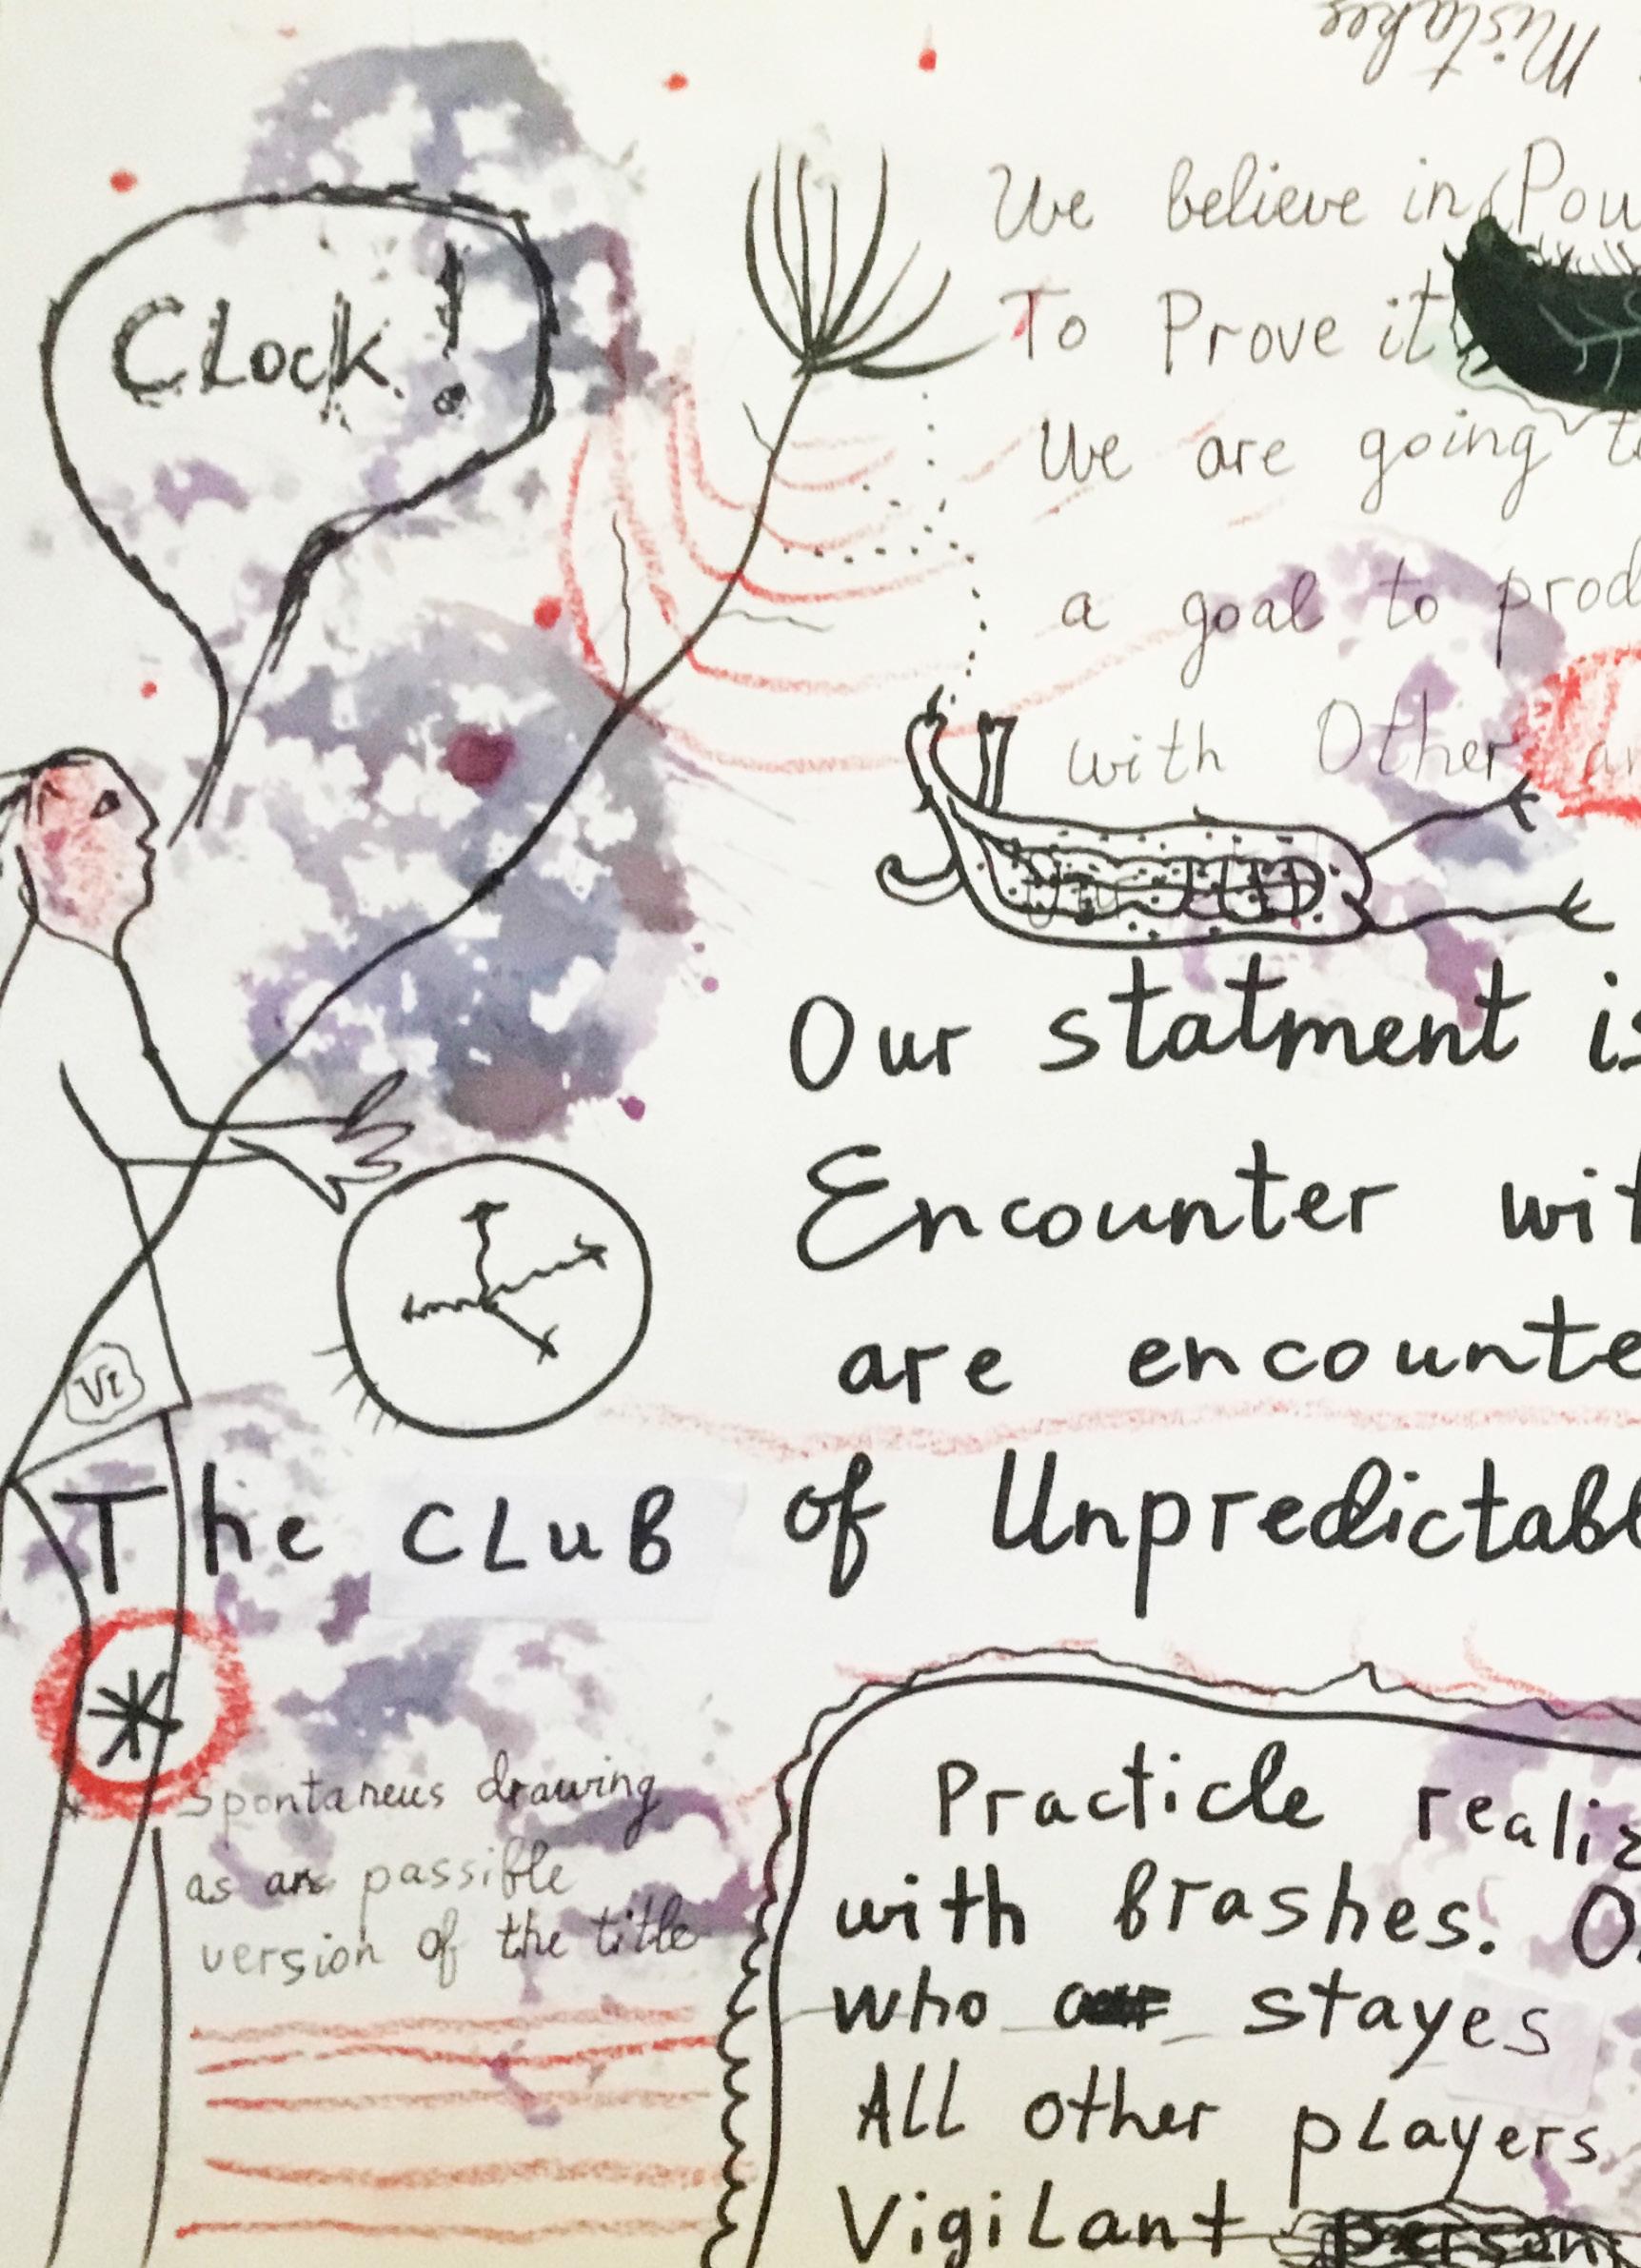 Mistakes
Clock!
We believe in Pow
To Prove it
We are going to
a goal to prod
with Other an
Our statment is
Encounter wit
are encounte
VI
The CLUB of Unpredictabl
*
Spontaneus drawing
as an passible
version of the title
Practicle realiz
with brashes. O
who stayes
All other players
Vigilant person